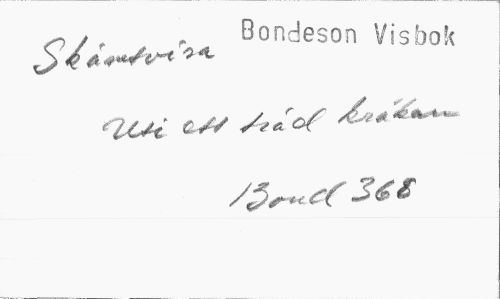 Bondeson Visbok
Skämtvisa
Uti ett träd kråkan
Bond 368